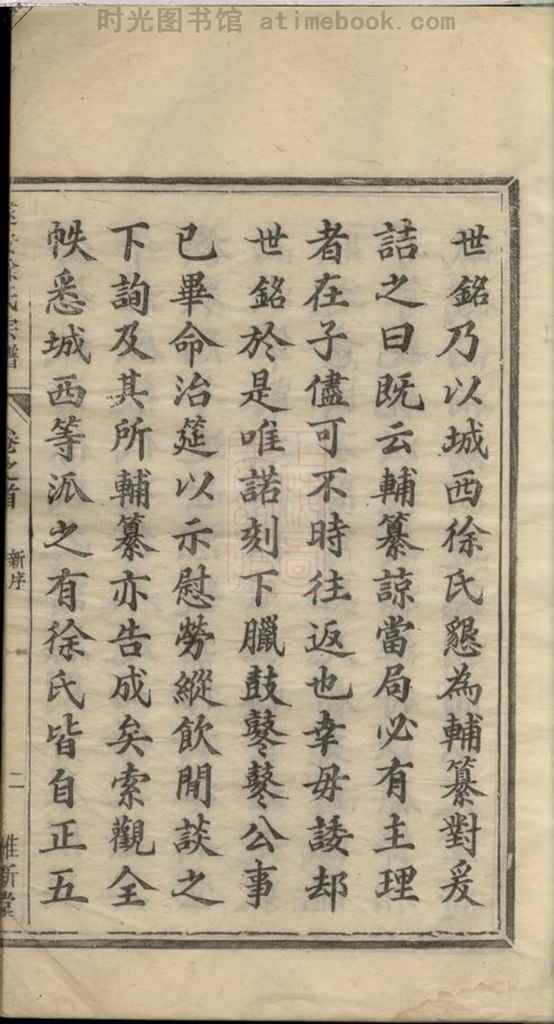 时光图书馆 - atimebook.com
世銘乃以城西徐氏懇為輔纂對爰
詰之曰既云輔纂諒當局必有主理
者在子儘可不時往返也幸毋諉却
世銘於是唯諾刻下臘鼓鼕鼕公事
已畢命治筵以示慰勞縱飲閒談之
下詢及其所輔纂亦告成矣索觀全
帙悉城西等派之有徐氏皆自正五
徐氏宗譜
卷之首
新序
二
惟新堂